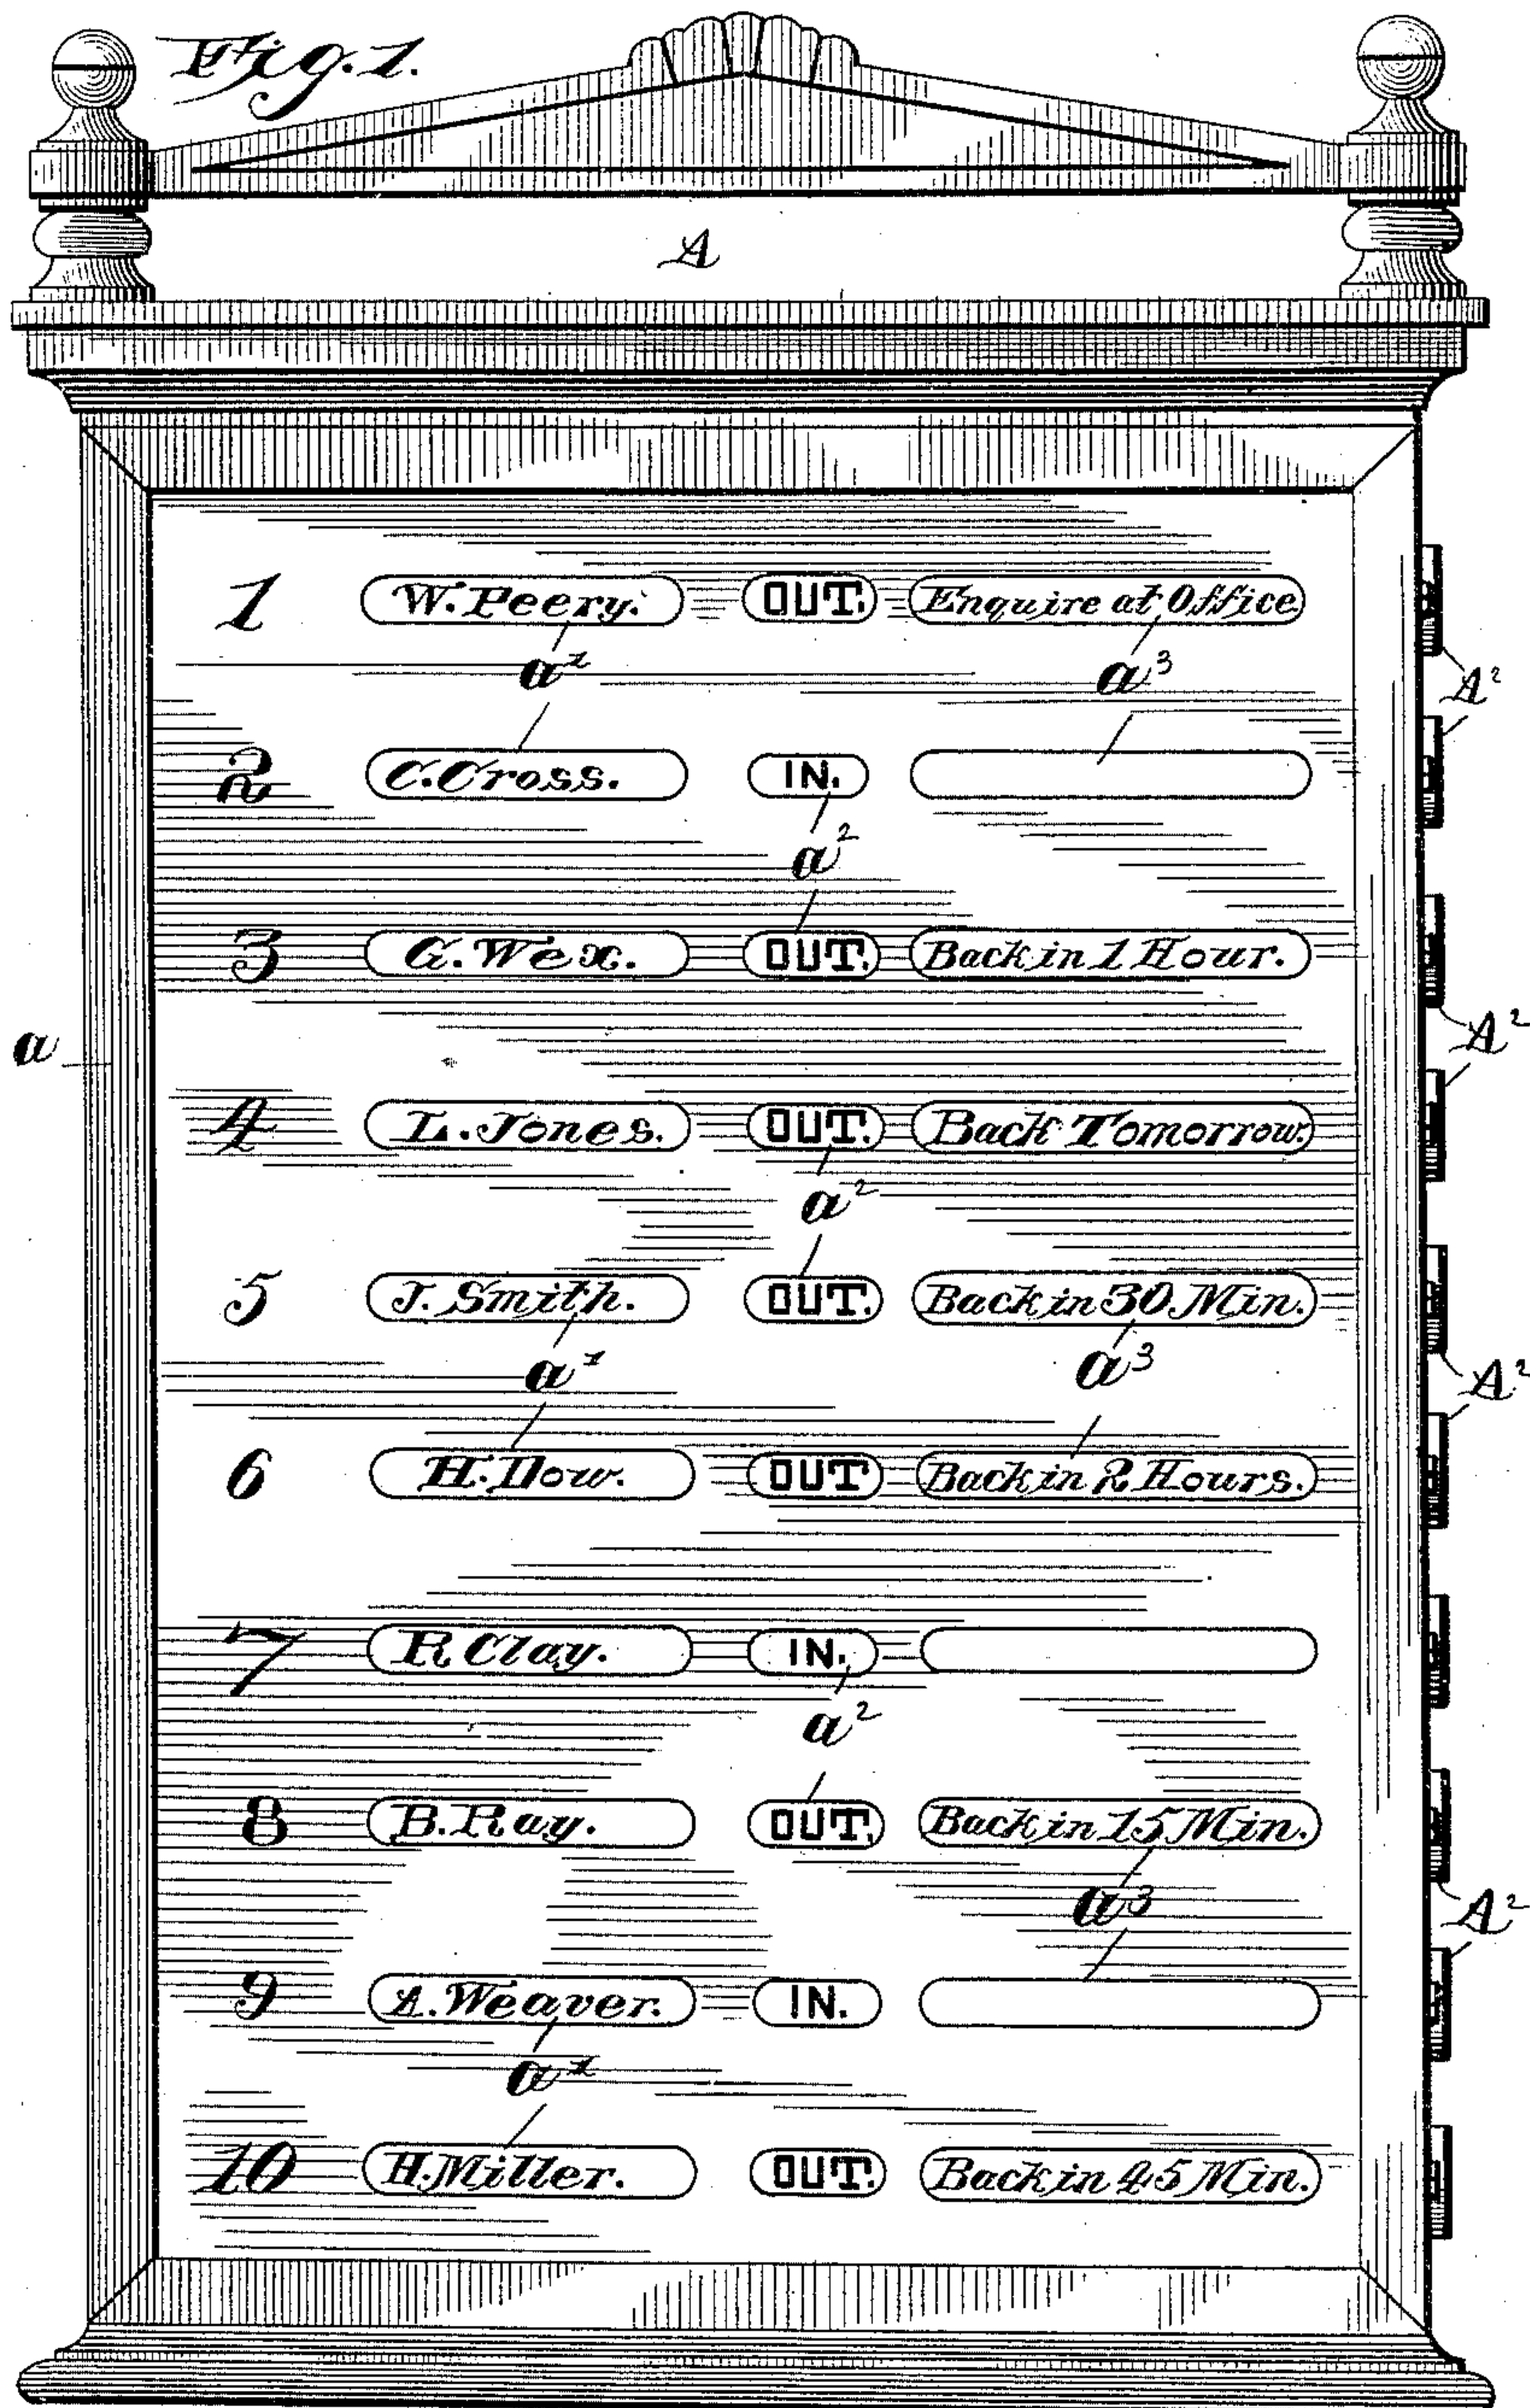 Fig. 1.
A
1 W. Peery. OUT. Enquire at Office
a¹ a³
A²
2 C. Cross. IN.
a²
3 G. Wex. OUT. Back in 1 Hour.
a A²
4 L. Jones. OUT. Back Tomorrow.
a²
5 J. Smith. OUT. Back in 30 Min.
a¹ a³
A²
6 H. Dow. OUT Back in 2 Hours.
7 R Clay. IN.
a²
8 B. Ray. OUT. Back in 15 Min.
a³
A²
9 A. Weaver. IN.
a¹
10 H. Miller. OUT. Back in 45 Min.